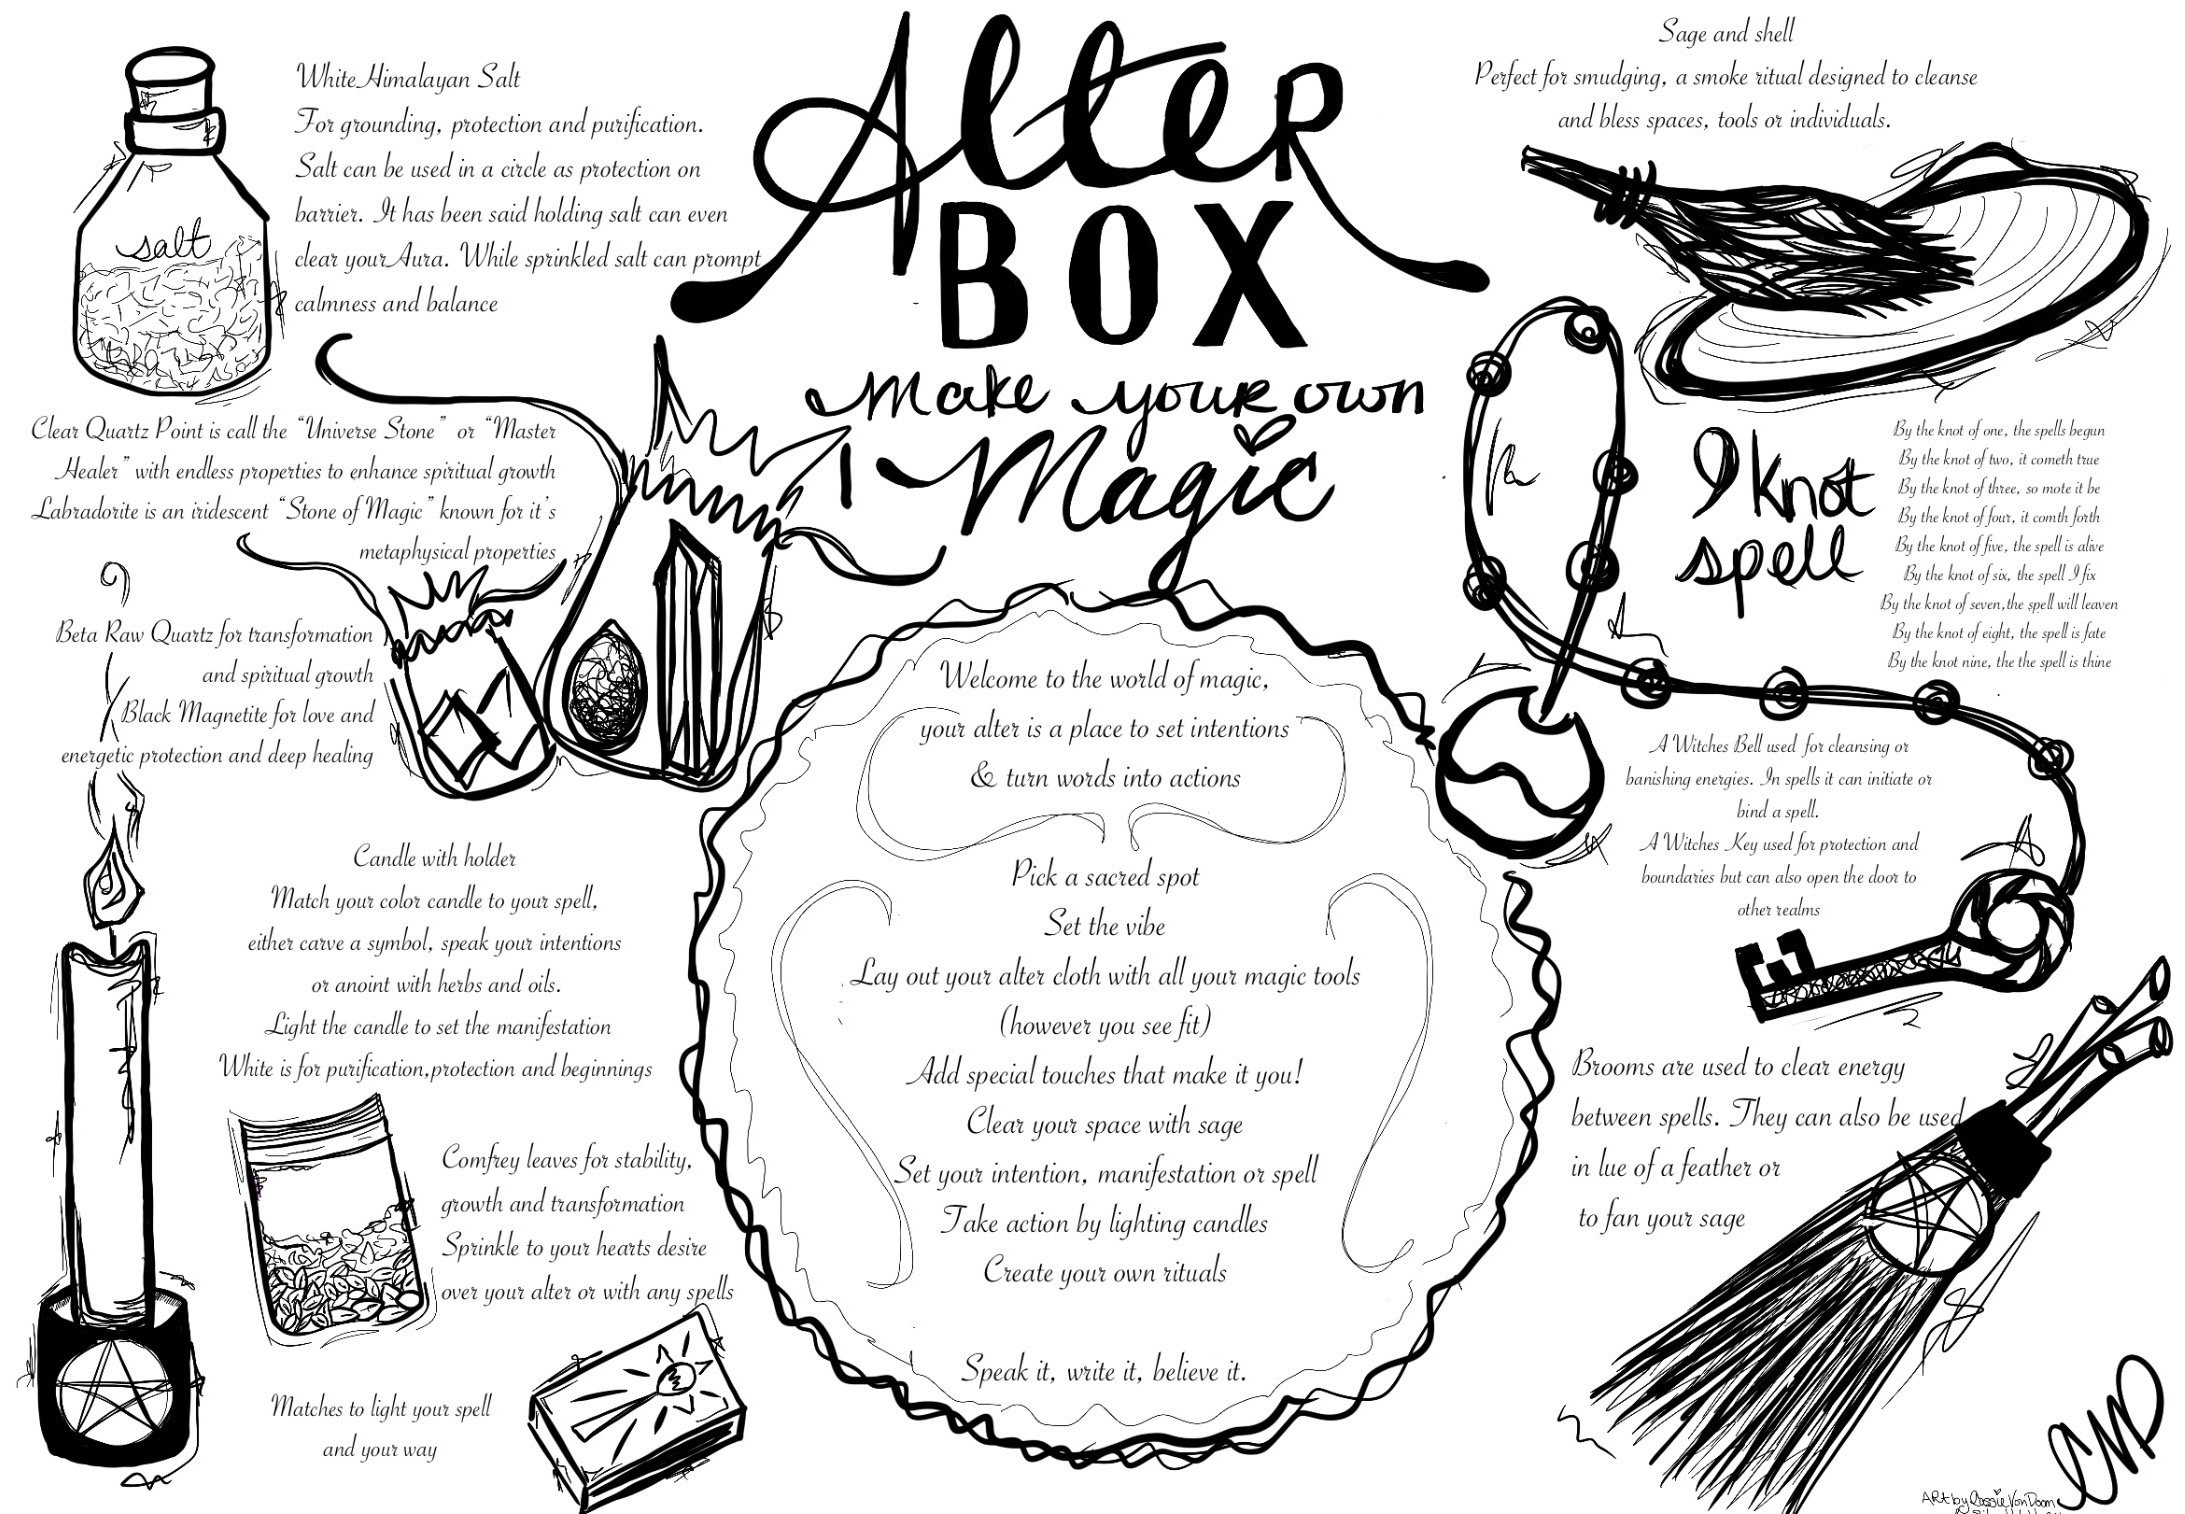 Alter
BOX
make your own
Magic
White Himalayan Salt
For grounding, protection and purification.
Salt can be used in a circle as protection on
barrier. It has been said holding salt can even
clear your Aura. While sprinkled salt can prompt
calmness and balance
salt
Clear Quartz Point is call the “Universe Stone” or “Master
Healer” with endless properties to enhance spiritual growth
Labradorite is an iridescent “Stone of Magic” known for it's
metaphysical properties
Beta Raw Quartz for transformation
and spiritual growth
Black Magnetite for love and
energetic protection and deep healing
Candle with holder
Match your color candle to your spell,
either carve a symbol, speak your intentions
or anoint with herbs and oils.
Light the candle to set the manifestation
White is for purification,protection and beginnings
Comfrey leaves for stability,
growth and transformation
Sprinkle to your hearts desire
over your alter or with any spells
Matches to light your spell
and your way
Welcome to the world of magic,
your alter is a place to set intentions
& turn words into actions
Pick a sacred spot
Set the vibe
Lay out your alter cloth with all your magic tools
(however you see fit)
Add special touches that make it you!
Clear your space with sage
Set your intention, manifestation or spell
Take action by lighting candles
Create your own rituals
Speak it, write it, believe it.
Sage and shell
Perfect for smudging, a smoke ritual designed to cleanse
and bless spaces, tools or individuals.
9 Knot
spell
By the knot of one, the spells begun
By the knot of two, it cometh true
By the knot of three, so mote it be
By the knot of four, it comth forth
By the knot of five, the spell is alive
By the knot of six, the spell I fix
By the knot of seven,the spell will leaven
By the knot of eight, the spell is fate
By the knot nine, the the spell is thine
A Witches Bell used for cleansing or
banishing energies. In spells it can initiate or
bind a spell.
A Witches Key used for protection and
boundaries but can also open the door to
other realms
Brooms are used to clear energy
between spells. They can also be used
in lue of a feather or
to fan your sage
CMD
Art by Cassie VonDoom